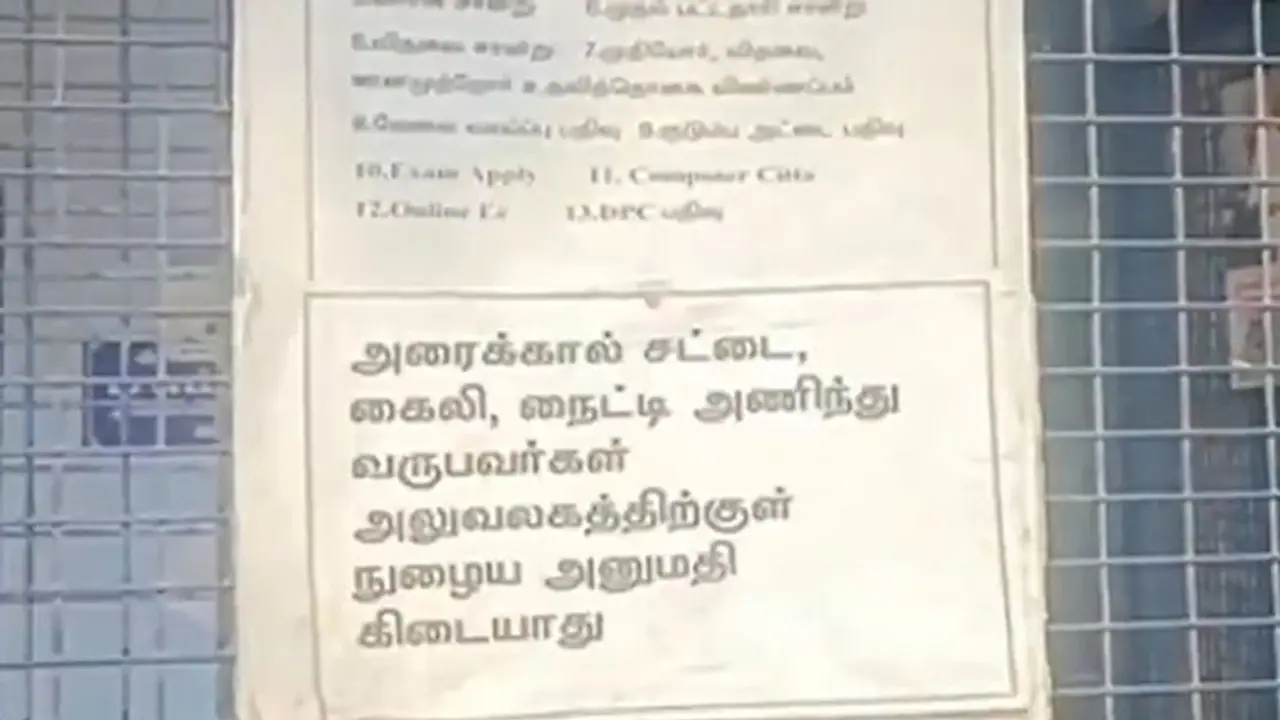 6.முதல் பட்டதாரி சான்று
விதவை சான்று 7.முதியோர், விதவை,
உதவித்தொகை விண்ணப்பம்
8.வேலை வாய்ப்பு பதிவு 9.குடும்ப அட்டை பதிவு
10.Exam Apply 11. Computer Citta
12.Online Ec 13.DPC பதிவு
அரைக்கால் சட்டை,
கைலி, நைட்டி அணிந்து
வருபவர்கள்
அலுவலகத்திற்குள்
நுழைய அனுமதி
கிடையாது